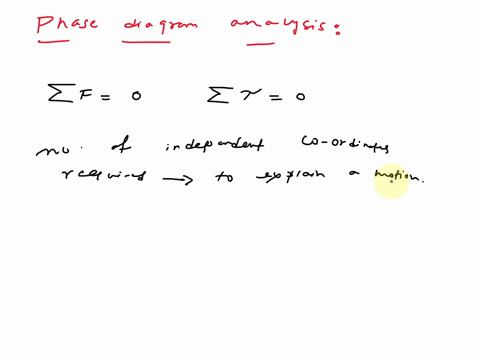 Phase diagram analysis:
∑F = 0 ∑τ = 0
no. of independent co-ordinates
required → to explain a motion.